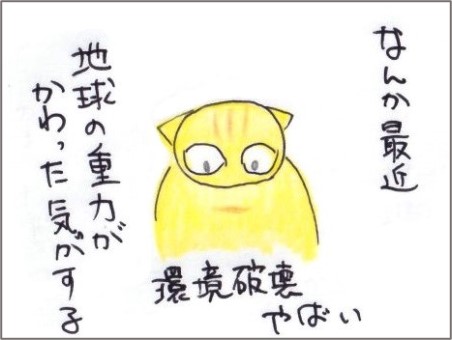 なんか最近
地球の重力が
かわった気がする
環境破壊
やばい